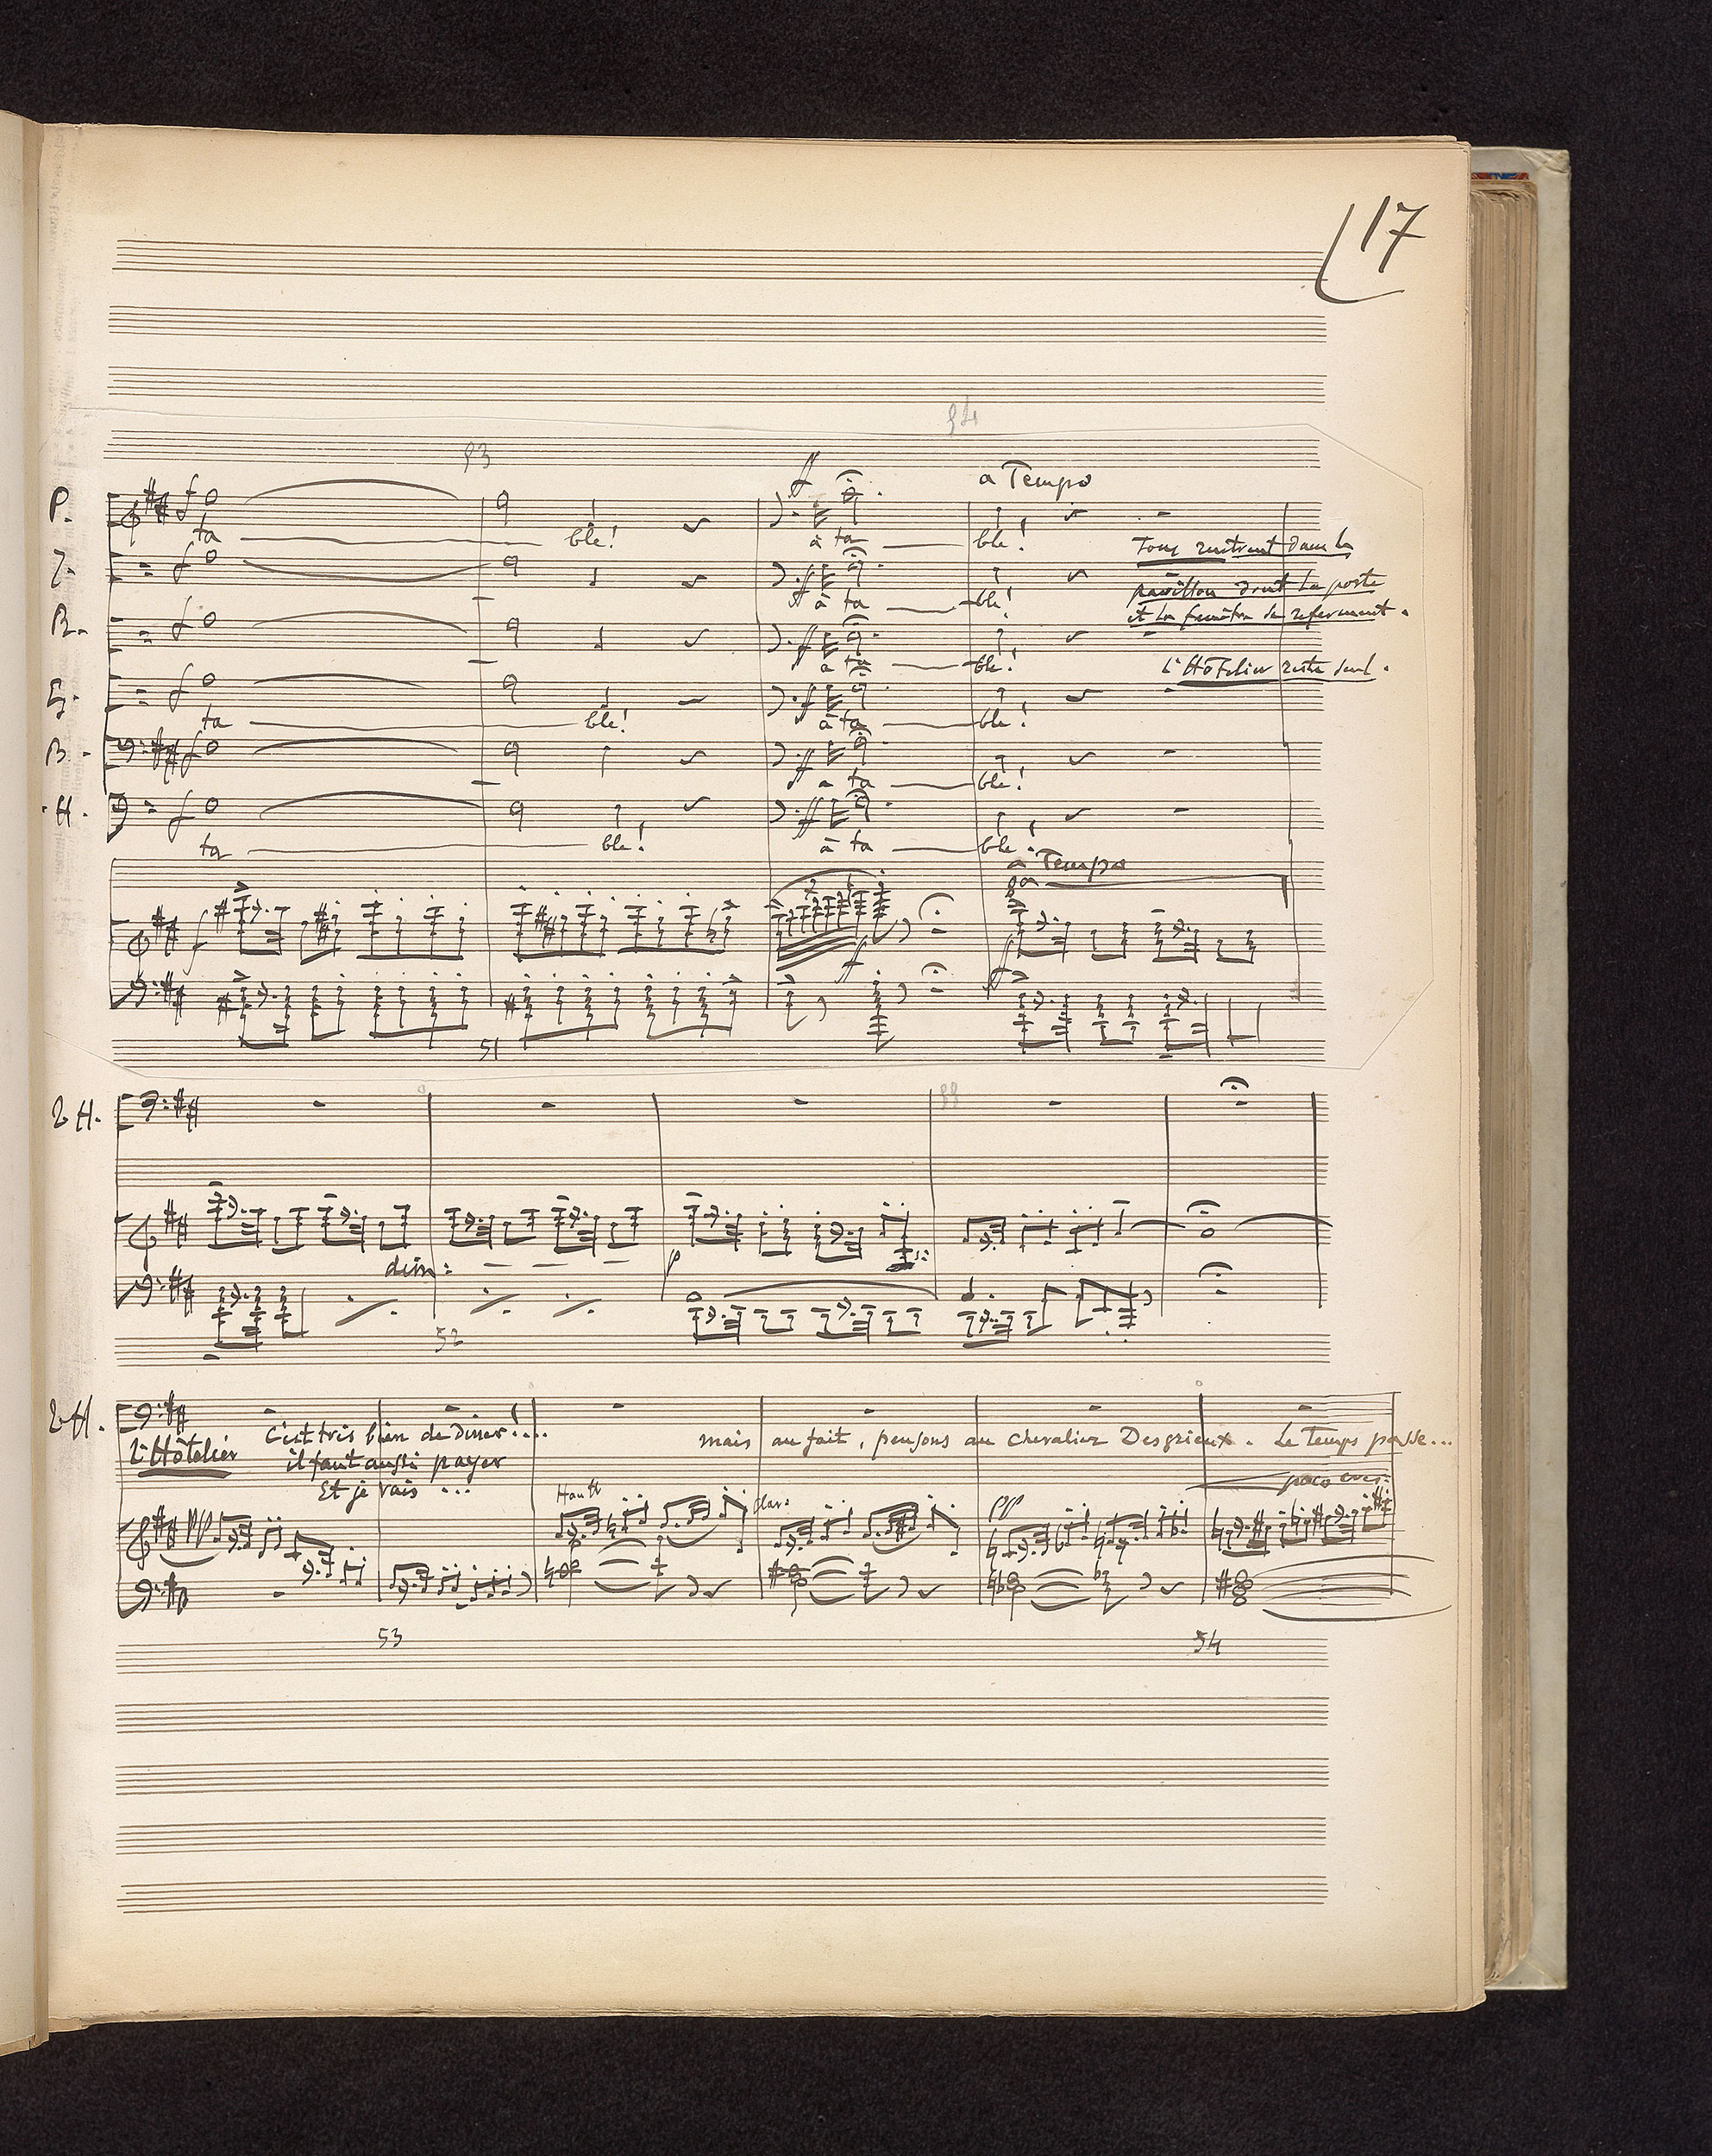 17
54
53
ff
a Tempo
P.
f
ta ble! à ta ble!
Tous rentrent dans le
J.
f
ff
à ta ble!
pavillon dont la porte
et la fenêtre se referment.
R.
f
ff
à ta ble!
L'Hôtelier reste seul.
G.
f
ff
ta ble! à ta ble!
B.
f
ff
à ta ble!
H.
f
ff
ta ble! à ta ble!
a Tempo
8a
f
ff
ff
51
L'H.
dim:
p
52
L'H.
L'Hôtelier
C'est très bien de dîner!... mais au fait, pensons au chevalier Desgrieux. Le temps passe...
il faut aussi payer
Et je vais ...
poco cresc:
pp
Hautb
clar:
ppp
53
54